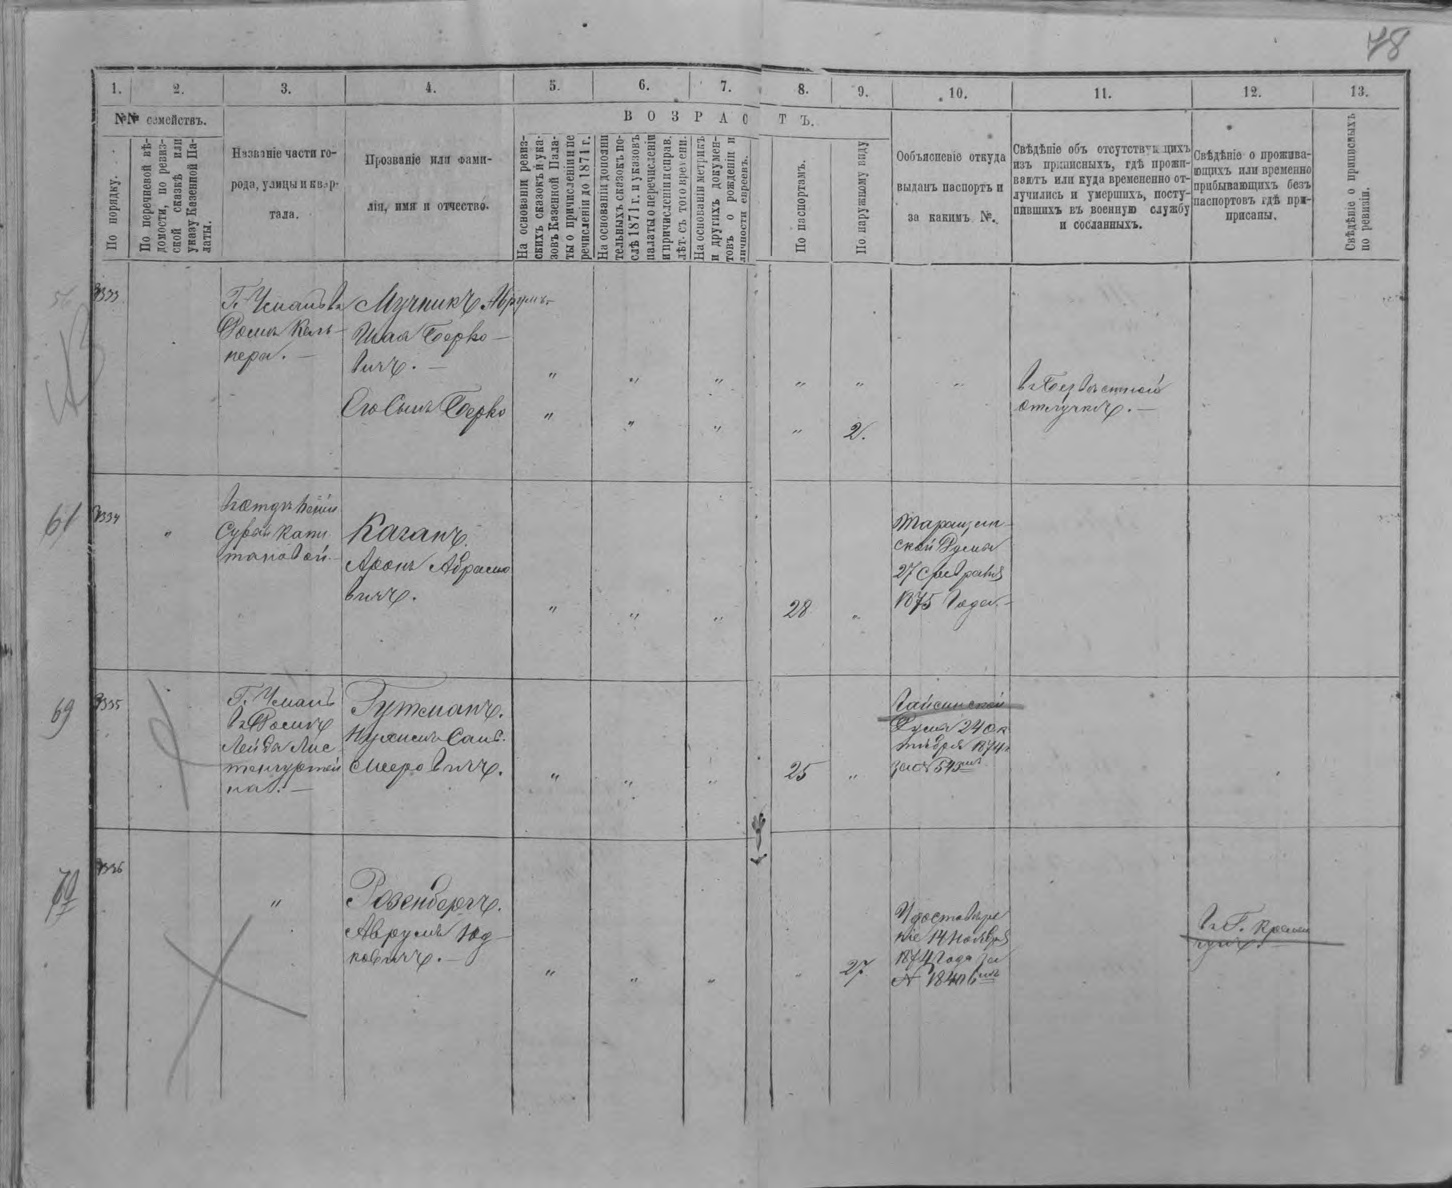 78
1. 2. 3. 4. 5. 6. 7. 8. 9. 10. 11. 12. 13.
№№ семействъ.
ВОЗРАСТЪ.
По порядку.
По перечневой вѣ-
домости, по ревиз-
ской сказкѣ или
указу Казенной Па-
латы.
Названіе части го-
рода, улицы и квар-
тала.
Прозваніе или фами-
лія, имя и отчество.
На основаніи ревиз-
скихъ сказокъ и ука-
зовъ Казенной Пала-
ты о причисленіи и пе
речисленіи до 1871 г.
На основаніи дополни
тельныхъ сказокъ по-
слѣ 1871 г. и указовъ
палаты о перечисленіи
и причисленіи и справ.
лѣт. съ того времени.
На основаніи метрикъ
и другихъ докумен-
товъ о рожденіи и
личности евреевъ.
По паспортамъ.
По наружному виду
Объясненіе откуда
выданъ паспортъ и
за какимъ №.
Свѣдѣніе объ отсутствующихъ
изъ приписныхъ, гдѣ прожи-
ваютъ или куда временно от-
лучились и умершихъ, посту-
пившихъ въ военную службу
и сосланныхъ.
Свѣдѣніе о прожива-
ющихъ или временно
прибывающихъ безъ
паспортовъ гдѣ при-
писаны.
Свѣдѣніе о приписныхъ
по ревизіи.
Г. Умань
Домъ Кель-
нера.
Мучникъ Аврумъ-
Шая Берко-
вичъ.
Его Сынъ Берко
" " " " " "
" " " " 2.
Въ безвѣстной
отлучкѣ.
61
"
Каганъ
Аронъ Абрамо
вичъ.
" " " 28 "
Таращан-
ской Думы
27 Февраля
1875 Года
69
Г. Умань
въ Домѣ
Гутманъ.
Мееровичъ.
" " " 25 "
Гайсинской
Думы 24 Ок
тября 1874
за № 545
70
"
Розенбергъ.
Аврумъ Юд-
ковичъ.
" " " " 27
Удостовѣре
ніе 14 Ноября
1874 Года за
№
Въ Г.